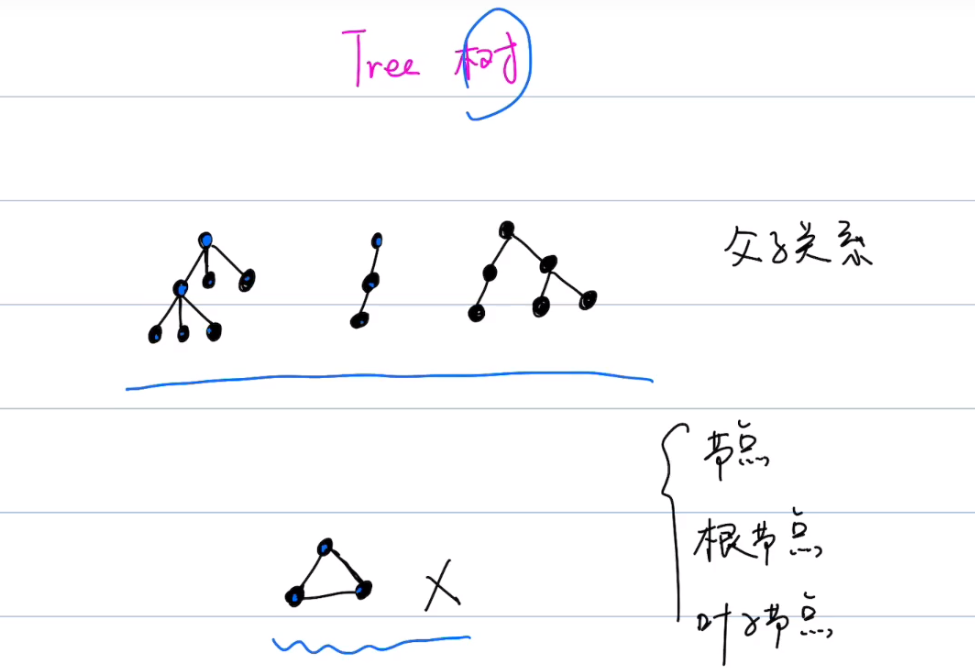 Tree 树
父子关系
节点
根节点
叶子节点